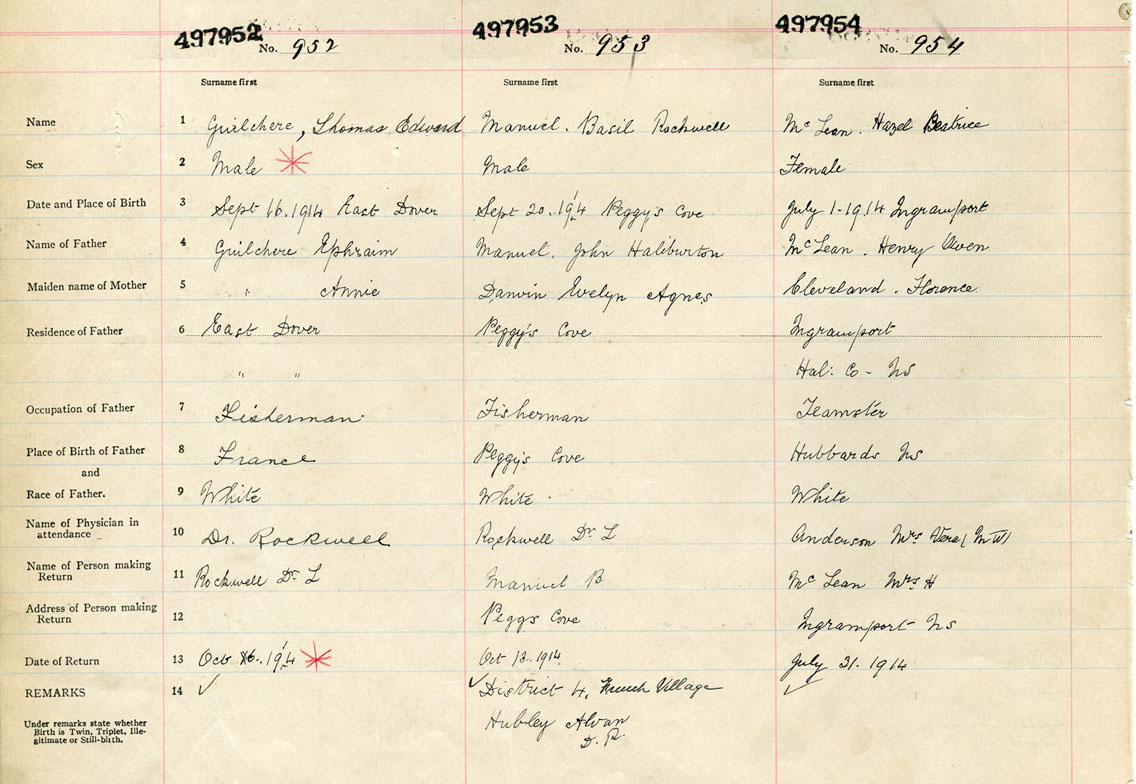 497952 No. 952 497953 No. 953 497954 No. 954
Surname first Surname first Surname first
Name 1 Guilchere, Thomas Edward Manuel. Basil Rockwell Mc Lean. Hazel Beatrice
Sex 2 Male Male Female
Date and Place of Birth 3 Sept 16. 1914 East Dover Sept 20. 1914 Peggy's Cove July 1-1914 Ingramport
Name of Father 4 Guilchere Ephraim Manuel. John Haliburton Mc Lean. Henry Owen
Maiden name of Mother 5 " Annie Evelyn Agnes Cleveland. Florence
Residence of Father 6 East Dover Peggy's Cove Ingramport
" " Hal: Co - Ns
Occupation of Father 7 Fisherman Fisherman Teamster
Place of Birth of Father 8 France Peggy's Cove Hubbards Ns
and
Race of Father. 9 White White White
Name of Physician in
attendance 10 Dr. Rockwell Rockwell Dr L Anderson Mrs Vera (M.W)
Name of Person making
Return 11 Rockwell Dr L Manuel B Mc Lean Mrs H
Address of Person making
Return 12 Peggs Cove Ingramport Ns
Date of Return 13 Oct 1914 Oct 13. 1914 July 31. 1914
REMARKS 14 ✓ ✓ District 4, French Village ✓
Under remarks state whether
Birth is Twin, Triplet, Ille-
gitimate or Still-birth.
Hubley Alvan
D. R.